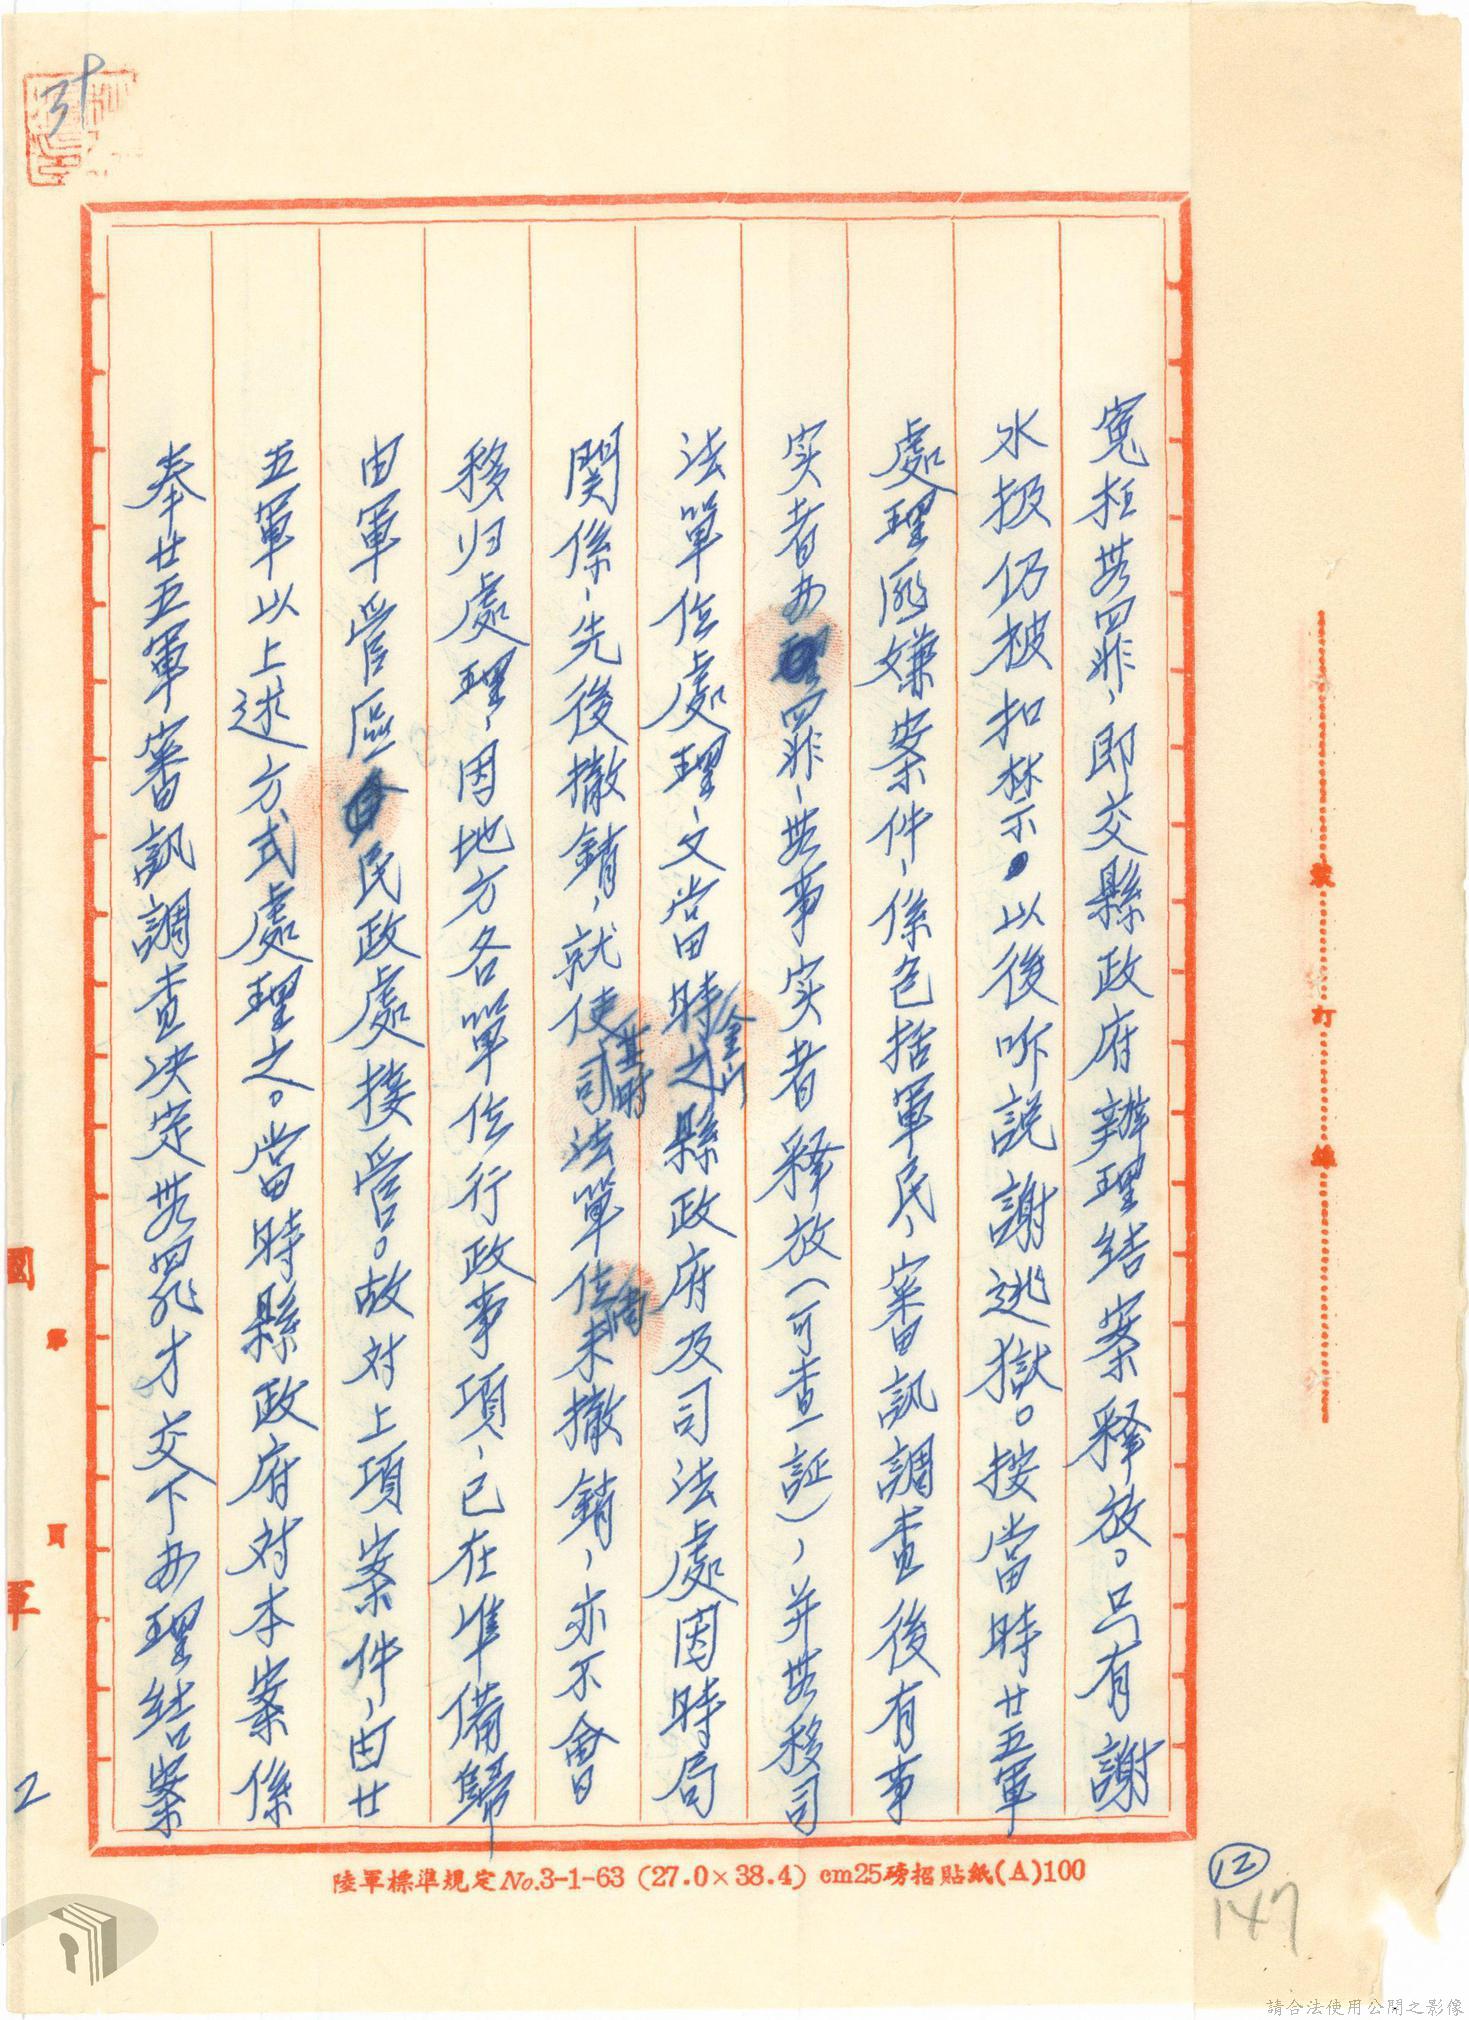 冤枉無罪，即交縣政府辦理結案釋放。只有謝
水扱仍被扣禁。以後听説謝逃獄。按當時廿五軍
處理匪嫌案件，係包括軍民，審訊調查後有事
实者办罪，無事实者释放（可查証），并無移司
法單位處理，文當時金山之縣政府及司法處因時局
関係，先後撤銷，就使當時司法單位尚未撤銷，亦不會
移归處理，因地方各單位行政事項，已在準備歸
由軍管區民政處接管。故対上項案件，由廿
五軍以上述方式處理之。當時縣政府对本案係
奉廿五軍審訊調查决定無罪才交下办理結案
陸軍標準規定No.3-1-63（27.0×38.4）cm25磅招貼紙(A)100
裝
訂
線
國
軍
第
頁
2
12
147
請合法使用公開之影像